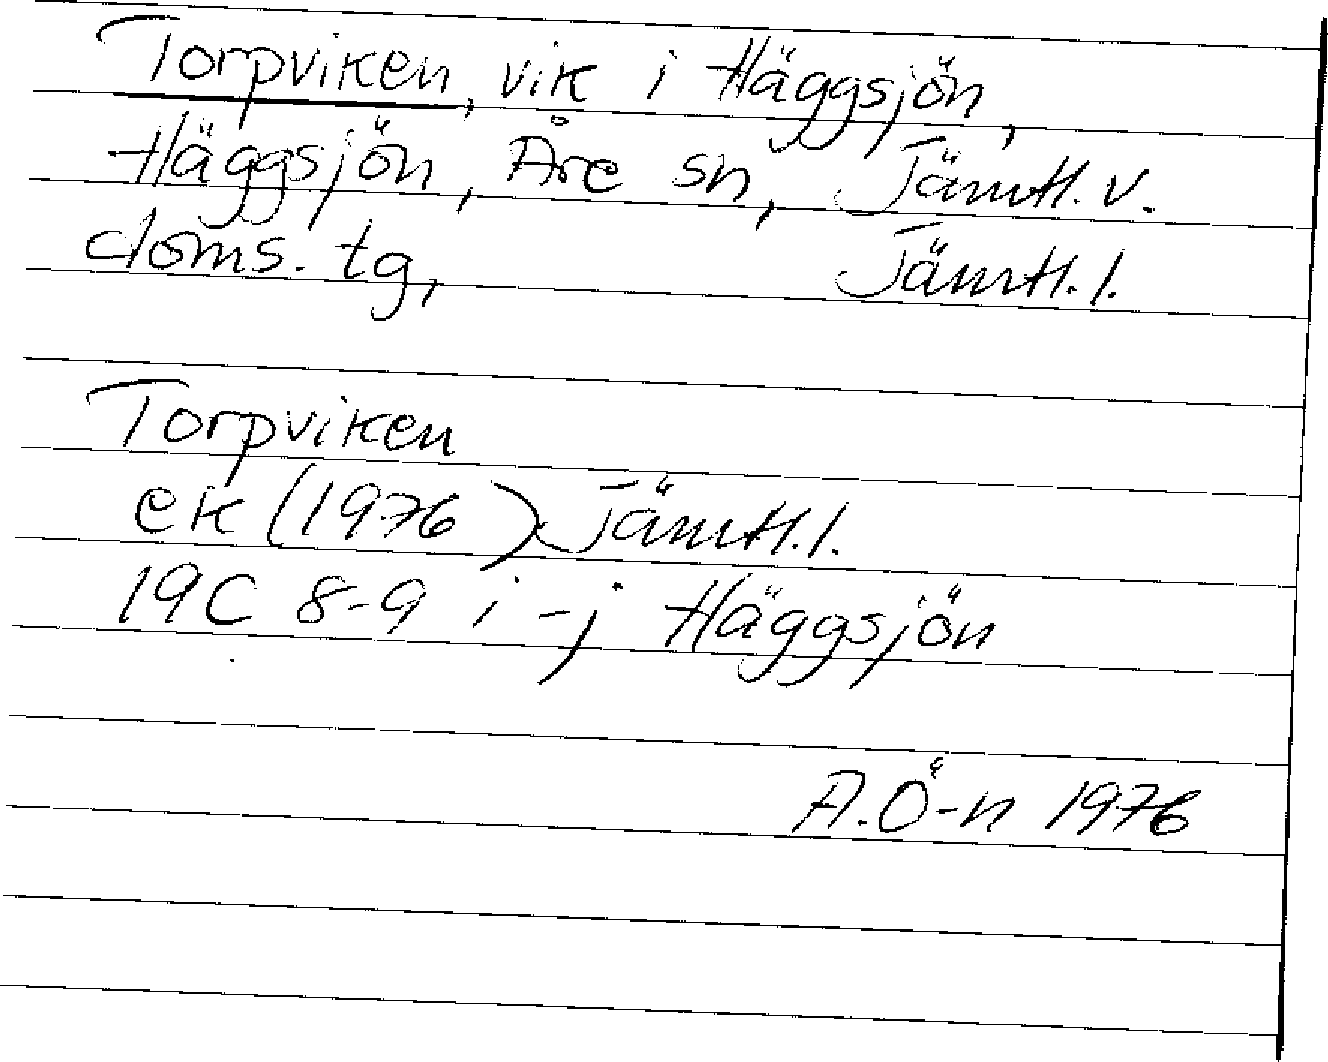 Torpviken, vik i Häggsjön,
Häggsjön, Åre sn, Jämtl. v.
doms. tg, Jämtl. l.
Torpviken
ek (1976) Jämtl. l.
19C 8-9 i-j Häggsjön
A. Ö-n 1976